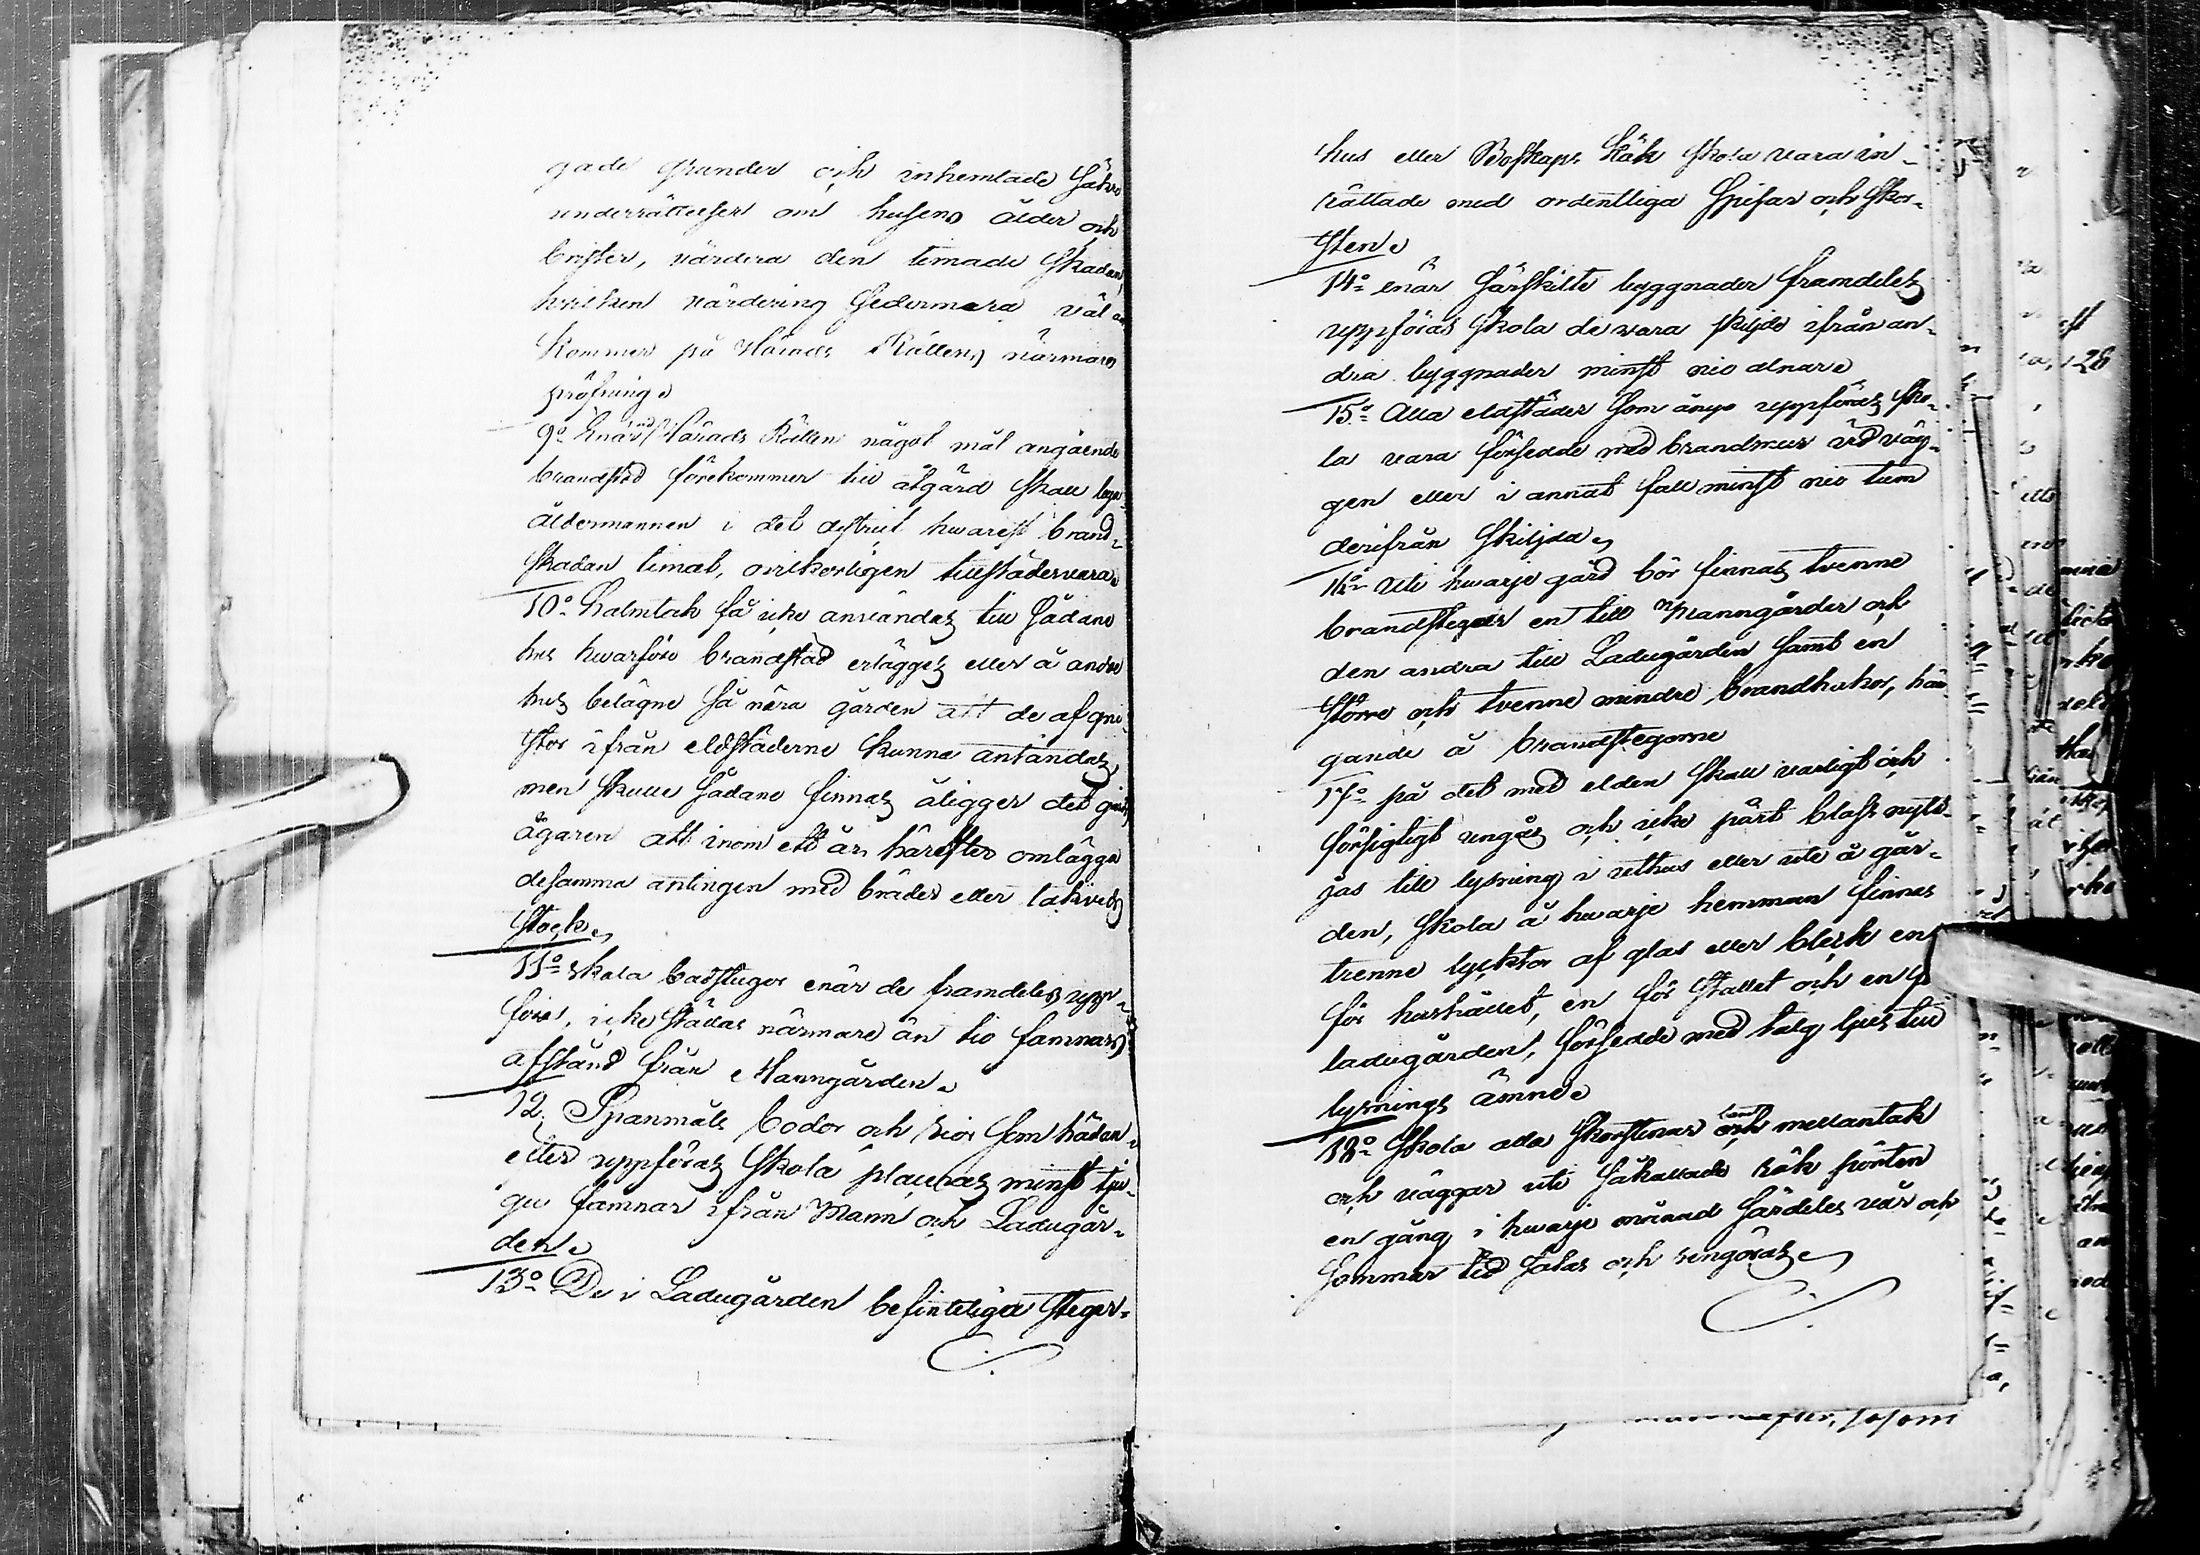 gade grunder och inhemtade säkra
underrättelser om husens ålder och
brister, värdera den timade skadan,
hvilken värdering sedermera väl an
kommer på Härads Rättens närmare
pröfning.
9o Enär vid Härads Rätten något mål angående
brandstod förekommer till åtgärd skall bya
åldermannen i det distrikt hwarest brand-
skadan timat, ovilkorligen tillstädesvara.
10o Halmtak få icke användas till sådane
hus hwarföre brandstod erlägges eller å andre
hus belägne så nära gården att de af gni-
stor ifrån eldstäderne kunna antändas,
men skulle sådane finnas åligger det gårds
ägaren att inom ett år härefter omlägga
desamma antingen med bräder eller takveds
stock.
11o Skola badstugor enär de framdeles upp-
föras, icke ställas närmare än tio famnars
afstånd från Manngården.
12. Spanmåls bodor och rior som hädan-
efter uppföras skola placeras minst tju-
gu famnar ifrån Mann och Ladugår-
den.
13o De i Ladugården befinteliga steger-
hus eller Boskaps kök skola vara in-
rättade med ordentliga spisar och skor-
sten.
14o enär särskilte byggnader framdeles
uppföras skola de vara skiljde ifrån an-
dra byggnader minst nio alnar.
15o Alla eldstäder som ånyo uppföras sko-
la vara försedde med brandmur vid väg-
gen eller i annat fall minst nio tum
derifrån skiljda.
16o Uti hwarje gård bör finnas tvenne
brandstegar en till Manngården och
den andra till Ladugården samt en
större och tvenne mindre brandhakar, hän-
gande å brandstegorne
17o på det med elden skall varligt och
försigtigt umgås och icke pärt bloss nytt-
jas till lysning i uthus eller ute å går-
den, skola å hwarje hemman finnas
trenne lycktor af glas eller bleck en
för hushållet, en för stallet och en
ladugården, försedde med talg ljus till
lysnings ämne.
18o Skola alla skorstenar samt mellantak
och väggar uti såkallade rök pörten
en gång i hwarje månad särdeles vår och
sommar tid sotas och rengöras.